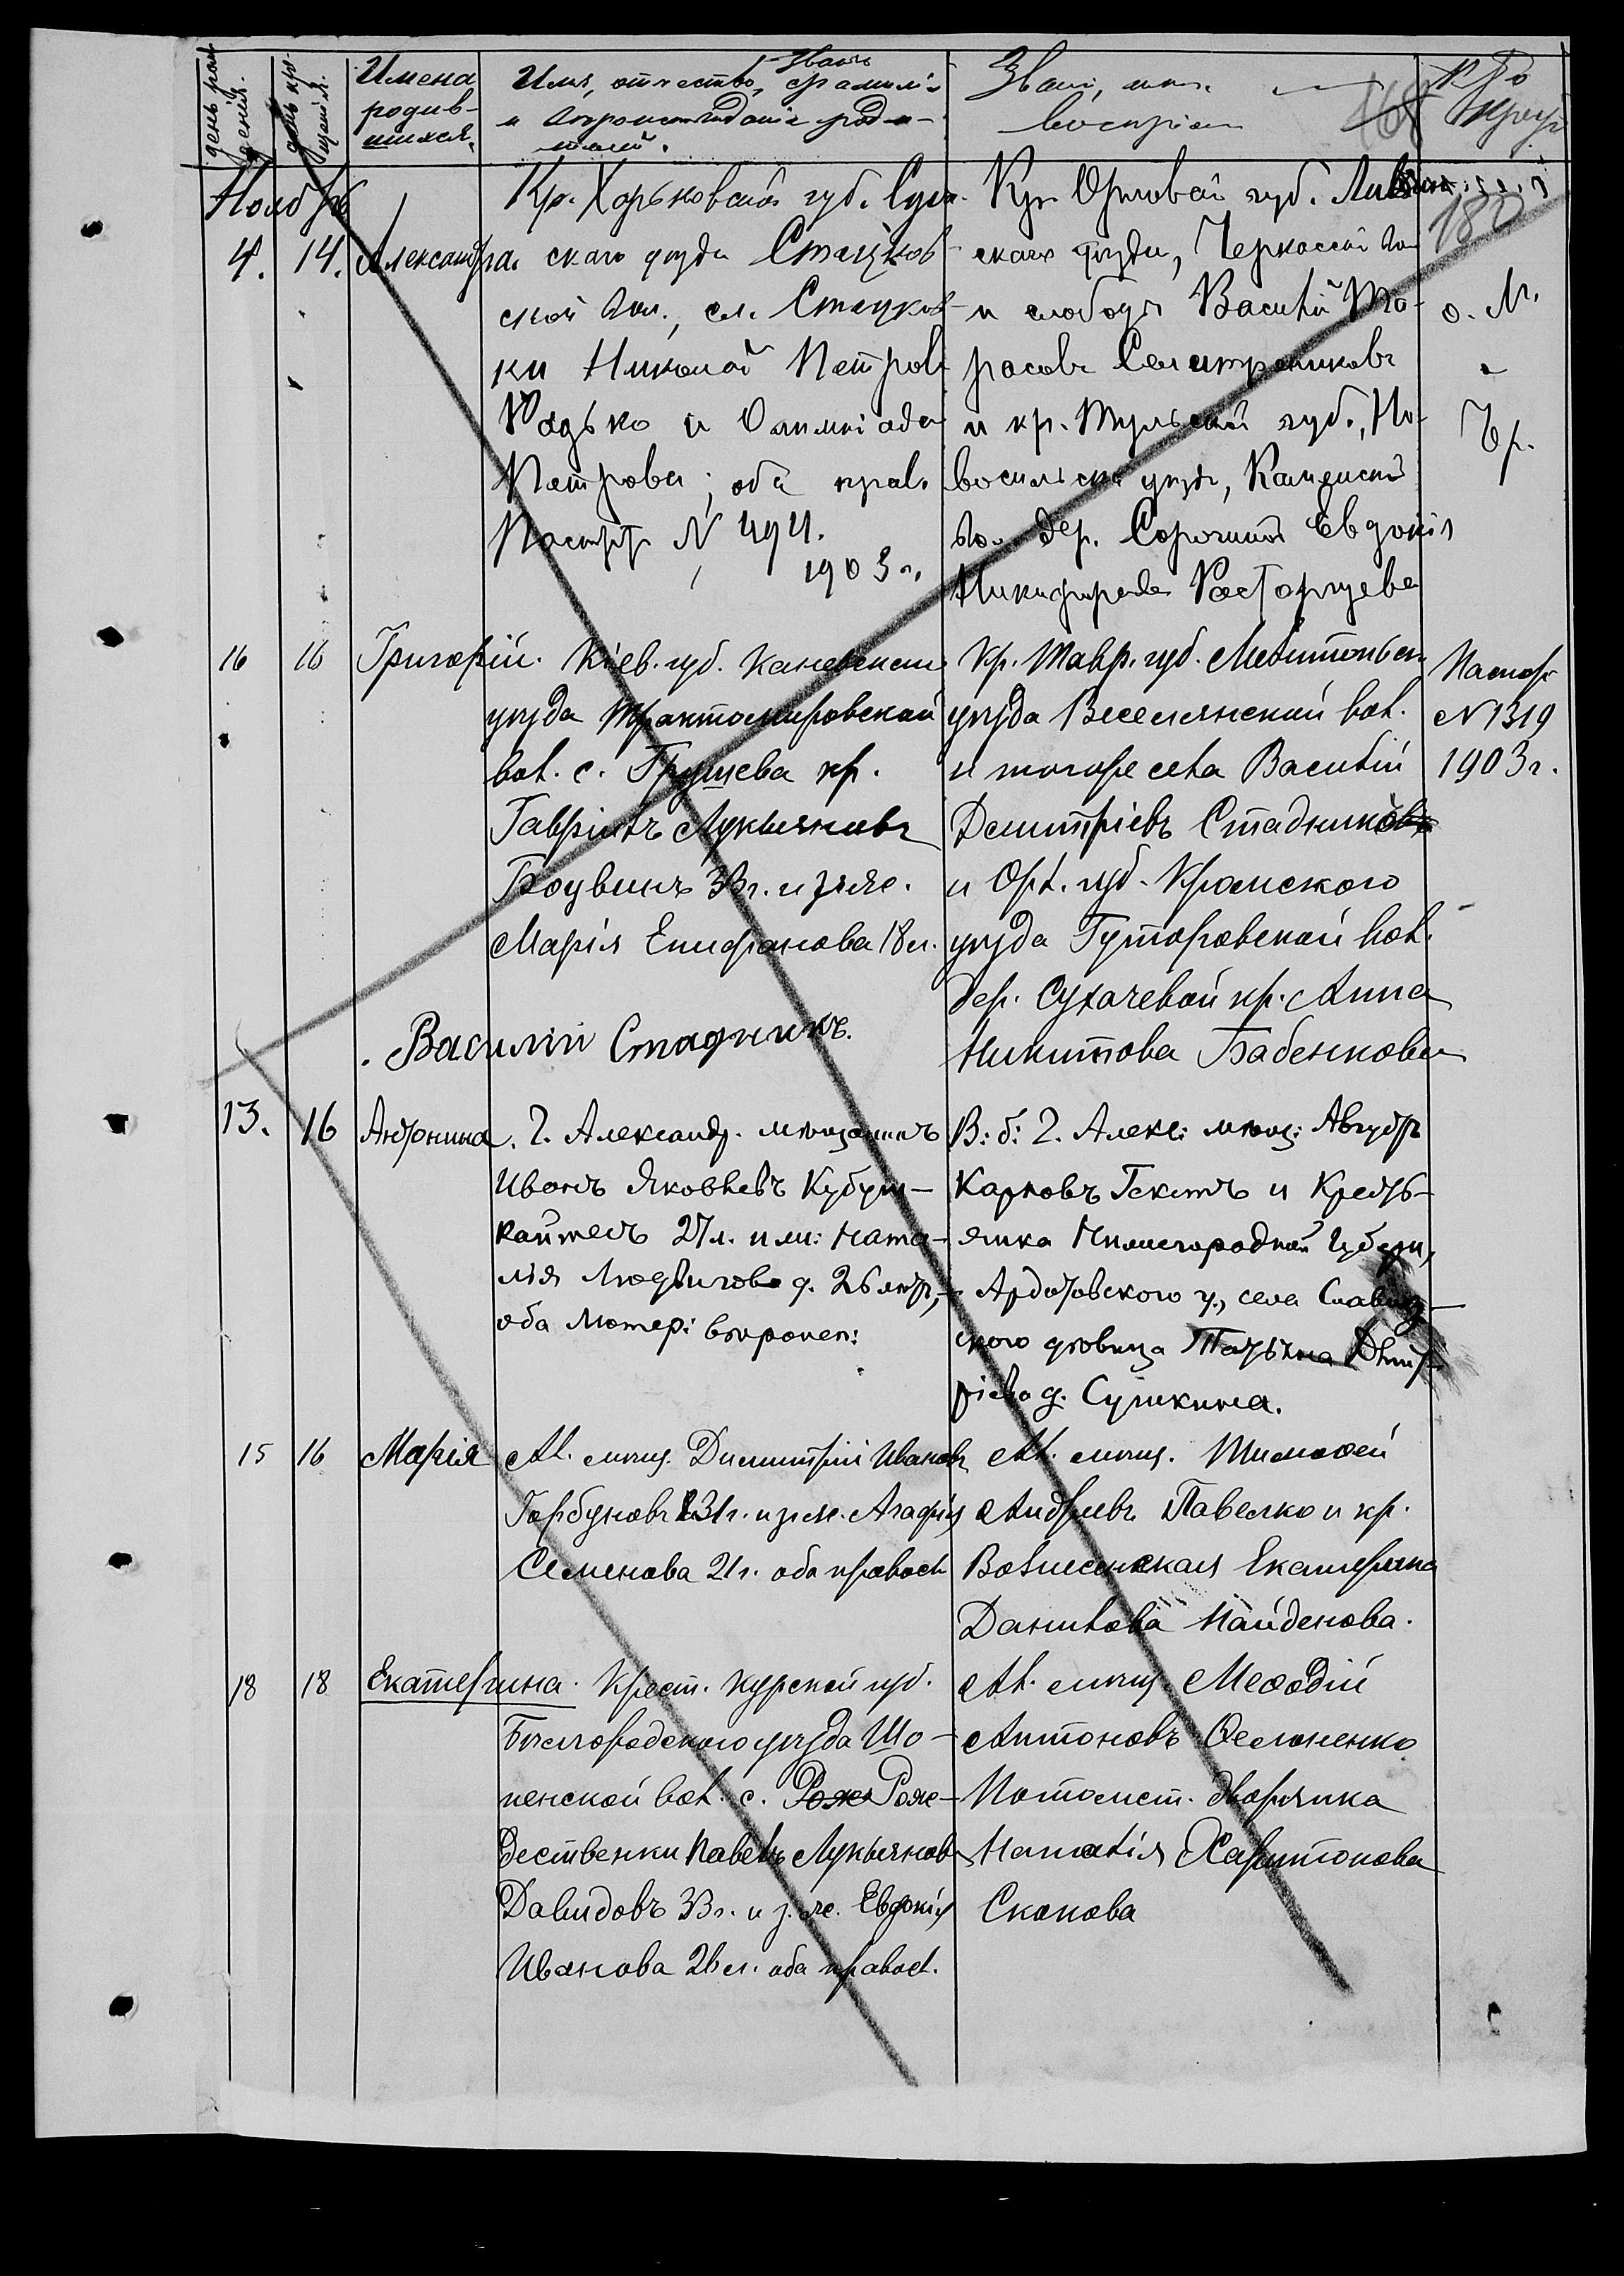 день рож
денія.
день кр-
щенія.
Имена
родив-
шихся.
Званіе
Имя, отчество, фамилія
и вѣроисповѣданіе роди-
телей.
Званіе, имя.
воспріем
Кто
крест
168
180
Ноябрь
4. 14. Александра
Кр. Харьковской губ. Сум-
скаго уѣзда Стецков-
ской вол., сл. Стецков-
ки Николай Петровъ
Радько и Олимпіада
Петрова; оба прав.
Паспорт N 494.
1903 г.
Кр. Орловской губ. Ливен-
скаго уѣзда, Черкасской вол
и слободы Василій Та-
расовъ Селитренниковъ
и кр. Тульской губ., Но-
восильска уѣзда, Каменской
во. дер. Сорочиной Евдокія
Никифорова Расторгуева
о. М.
Чр.
16 16 Григорій.
Кіев. губ. Каневскаго
уѣзда Трактомировской
вол. с. Грушева кр.
Гавріилъ Лукьяновъ
Боувинъ 33 г. и з. же.
Марія Епифанова 18 л.
Кр. Тавр. губ. Мелитопольск
уѣзда Веселянской вол.
и того же села Василій
Димитріевъ Стадниковъ
и Орл. губ. Кромского
уѣзда Гуторовской вол.
дер. Сухачевой кр. Анна
Никитова Бабенкова
Паспор
N 1319
1903 г.
Василій Стадникъ.
13. 16 Антонина.
г. Александр. мѣщанинъ
Иванъ Яковлевъ Кубуш-
кайтесъ 27 л. и ж: Ната-
лія Людвигова д. 26 лѣтъ,
оба Лютер: вѣроисп:
В: б: г. Алекс: мѣщ: Августъ
Карловъ Гекстъ и Кресть-
янка Нижегородской Губерн,
Ардатовского у., села Славиц-
ского дѣвица Татьяна Дмит-
ріева д. Сушкина.
15 16 Марія
Ал. мѣщ. Димитрій Ивановъ
Горбуновъ 31 г. и з. ж. Агафія
Семенова 21 г. оба правосл
Ал. мѣщ. Тимоѳей
Андреевъ Павелко и кр.
Вознесенская Екатерина
Данилова Найденова.
18 18 Екатерина.
Крест. Курской губ.
Бѣлгородского уѣзда Шо-
пенской вол. с. Рож Рож-
дественки Павелъ Лукьяновъ
Давидовъ 33 г. и з. же. Евдокія
Иванова 26 л. оба правосл.
Ал. мѣщ. Меѳодій
Антоновъ Ѳесюненко
Потомст. дворянка
Наталія Харитонова
Скокова